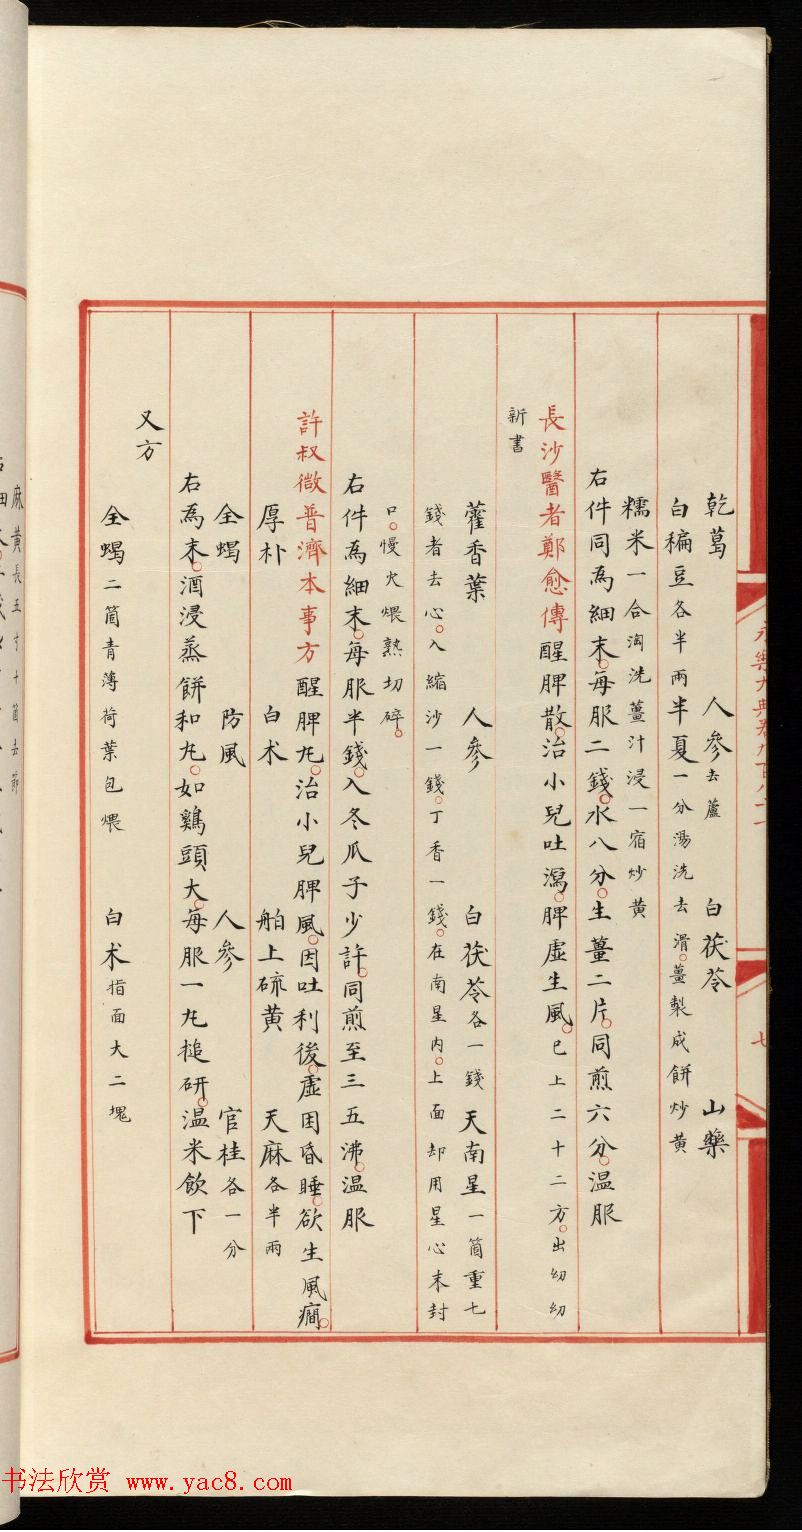 乾葛 人參去蘆 白茯苓 山藥
白稨豆各半兩半夏一分湯洗去滑。薑製成餅炒黃
糯米一合淘洗薑汁浸一宿炒黃
右件同為細末。每服二錢。水八分。生薑二片。同煎六分。温服
長沙醫者鄭愈傳醒脾散。治小兒吐瀉。脾虛生風。已上二十二方。出幼幼
新書
藿香葉 人參 白茯苓各一錢 天南星一箇重七
錢者去心。入縮沙一錢。丁香一錢。在南星内。上面却用星心末封
口。慢火煨熟切碎。
右件為細末。每服半錢。入冬瓜子少許。同煎至三五沸。温服
許叔微普濟本事方醒脾丸。治小兒脾風。因吐利後。虛困昏睡。欲生風癇。
厚朴 白术 舶上硫黄 天麻各半兩
全蝎 防風 人參 官桂各一分
右為末。酒浸蒸餅和丸。如鷄頭大。每服一丸搥研。温米飲下
又方
全蝎二箇青薄荷葉包煨 白术指面大二塊
麻黄長五寸十箇去節
永樂大典卷九百八十一
七
书法欣赏 www.yac8.com